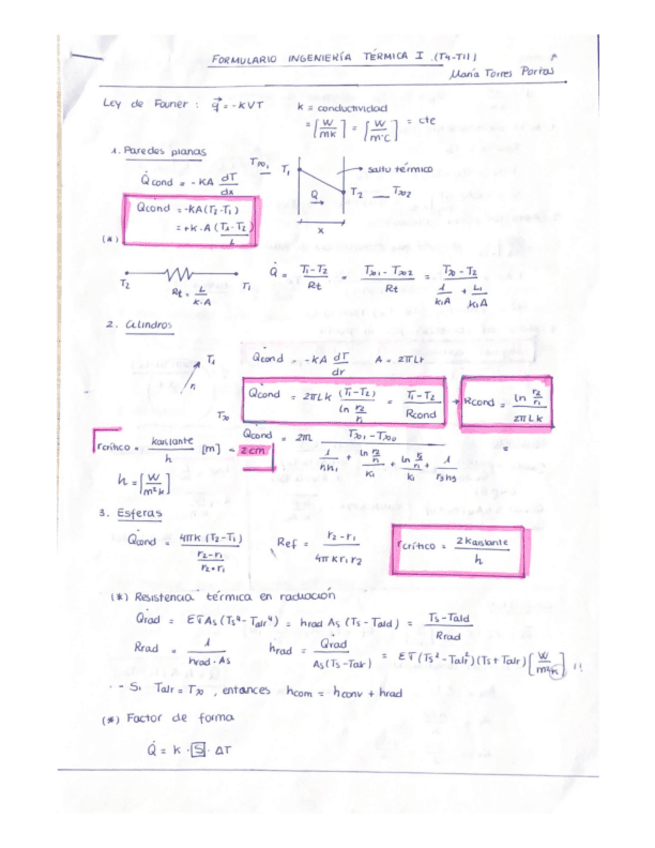 FORMULARIO INGENIERÍA TÉRMICA I (T4-T11)
María Torres Porras
Ley de Fourier : q⃗ = -k∇T
k = conductividad
= [W/mK] = [W/m°C] = cte
1. Paredes planas
Q̇cond = -KA dT/dx
T∞1 T1 → salto térmico
Q̇ T2 T∞2
x
Q̇cond = -KA(T2-T1)
= +K·A (T1-T2)/L
(*)
T2 T1
Rt = L/K·A
Q̇ = (T1-T2)/Rt = (T∞1-T∞2)/Rt
2. Cilindros
T1
r1
Q̇cond = -KA dT/dr A = 2πLr
T∞
Q̇cond = 2πLk (T1-T2)/(ln r2/r1) = (T1-T2)/Rcond → Rcond = (ln r2/r1)/(2πLk)
rcrítico = kaislante/h [m] = 2cm
h = [W/m²K]
3. Esferas
Q̇cond = 4πk (T2-T1)
Ref = (r2-r1)/(4πKr1r2)
rcrítico = 2Kaislante/h
(*) Resistencia térmica en radiación
Q̇rad = EσAs(Ts⁴-Talr⁴) = hrad As (Ts-Tald) = (Ts-Tald)/Rrad
Rrad = 1/(hrad·As) hrad = Q̇rad/(As(Ts-Talr)) = Eσ(Ts²-Talr²)(Ts+Talr) [W/m²K] !!
- Si Talr = T∞, entonces hcom = hconv + hrad
(*) Factor de forma
Q̇ = K · S · ΔT